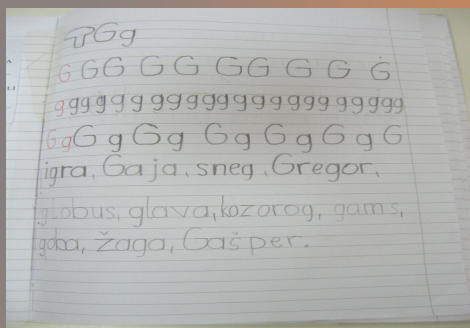 TPGg
G G G G G G G G G G
g g g g g g g g g g g g g g g g g g g g g g
G g G g G g G g G g G g G
igra, Gaja, sneg, Gregor,
globus, glava, kozorog, gams,
goba, žaga, Gašper.